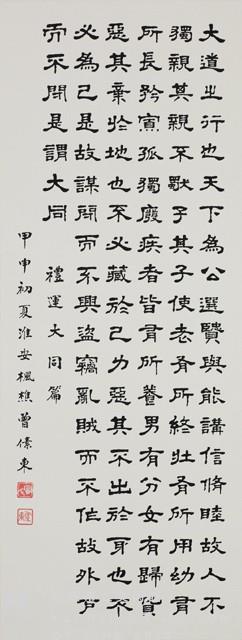 大道之行也天下為公選賢與能講信脩睦故人不
獨親其親不獨子其子使老有所終壯有所用幼有
所長矜寡孤獨廢疾者皆有所養男有分女有歸貨
惡其棄於地也不必藏於己力惡其不出於身也不
必為己是故謀閉而不興盜竊亂賊而不作故外戶
而不閉是謂大同 禮運大同篇
甲申初夏淮安楓樵曾傃東